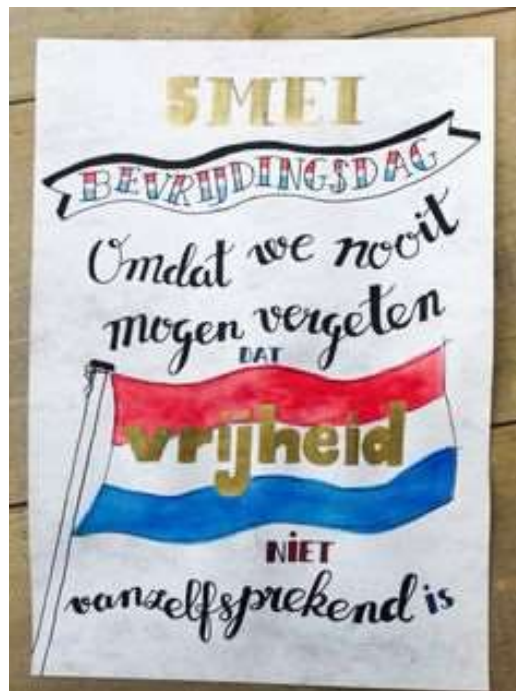 5 MEI
BEVRIJDINGSDAG
Omdat we nooit
mogen vergeten
DAT
vrijheid
NIET
vanzelfsprekend is